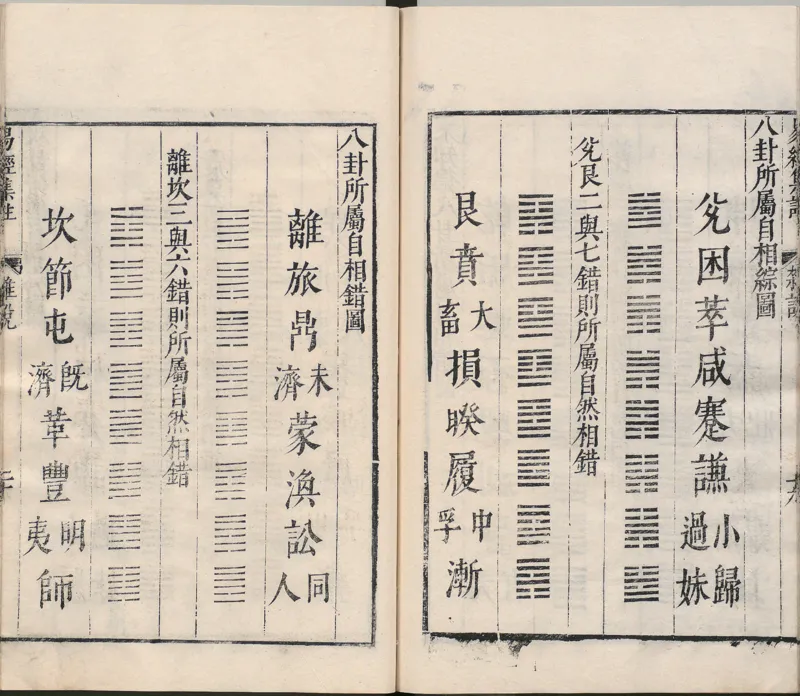 八卦所屬自相綜圖
兊困萃咸蹇謙小過歸妹
兊艮二與七錯則所屬自然相錯
艮賁大畜損睽履中孚漸
八卦所屬自相錯圖
離旅鼎未濟蒙渙訟同人
離坎三與六錯則所屬自然相錯
坎節屯既濟革豐明夷師
易經集註
雜說